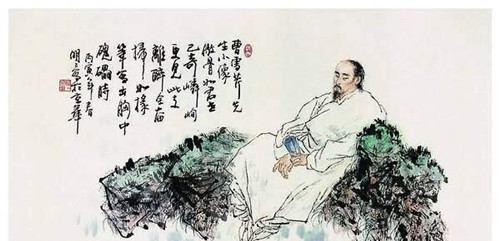 曹雪芹先
生小像
傲骨如君世
已奇嶙峋
更見此支
離醉余奮
掃如椽
筆寫出胸中
磈礧時
丙寅年春
明 於京華